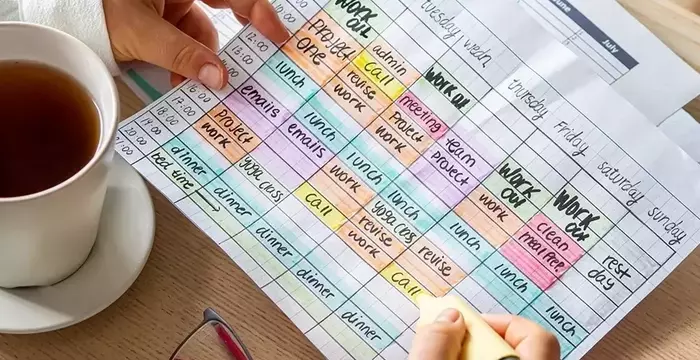 June
July
tuesday
wedn.
thursday
Friday
saturday
sunday
12:00
13:00
WORK OUT
admin
WORK OUT
project one
call
meeting
WORK OUT
WORK OUT
lunch
revise work
project work
team project
work
clean
meal prep
rest day
16:00
17:00
18:00
19:00
20:00
21:00
emails
lunch
lunch
lunch
lunch
lunch
lunch
project work
emails
work
yoga class
revise
dinner
yoga class
call
revise work
call
bed time
dinner
dinner
dinner
dinner